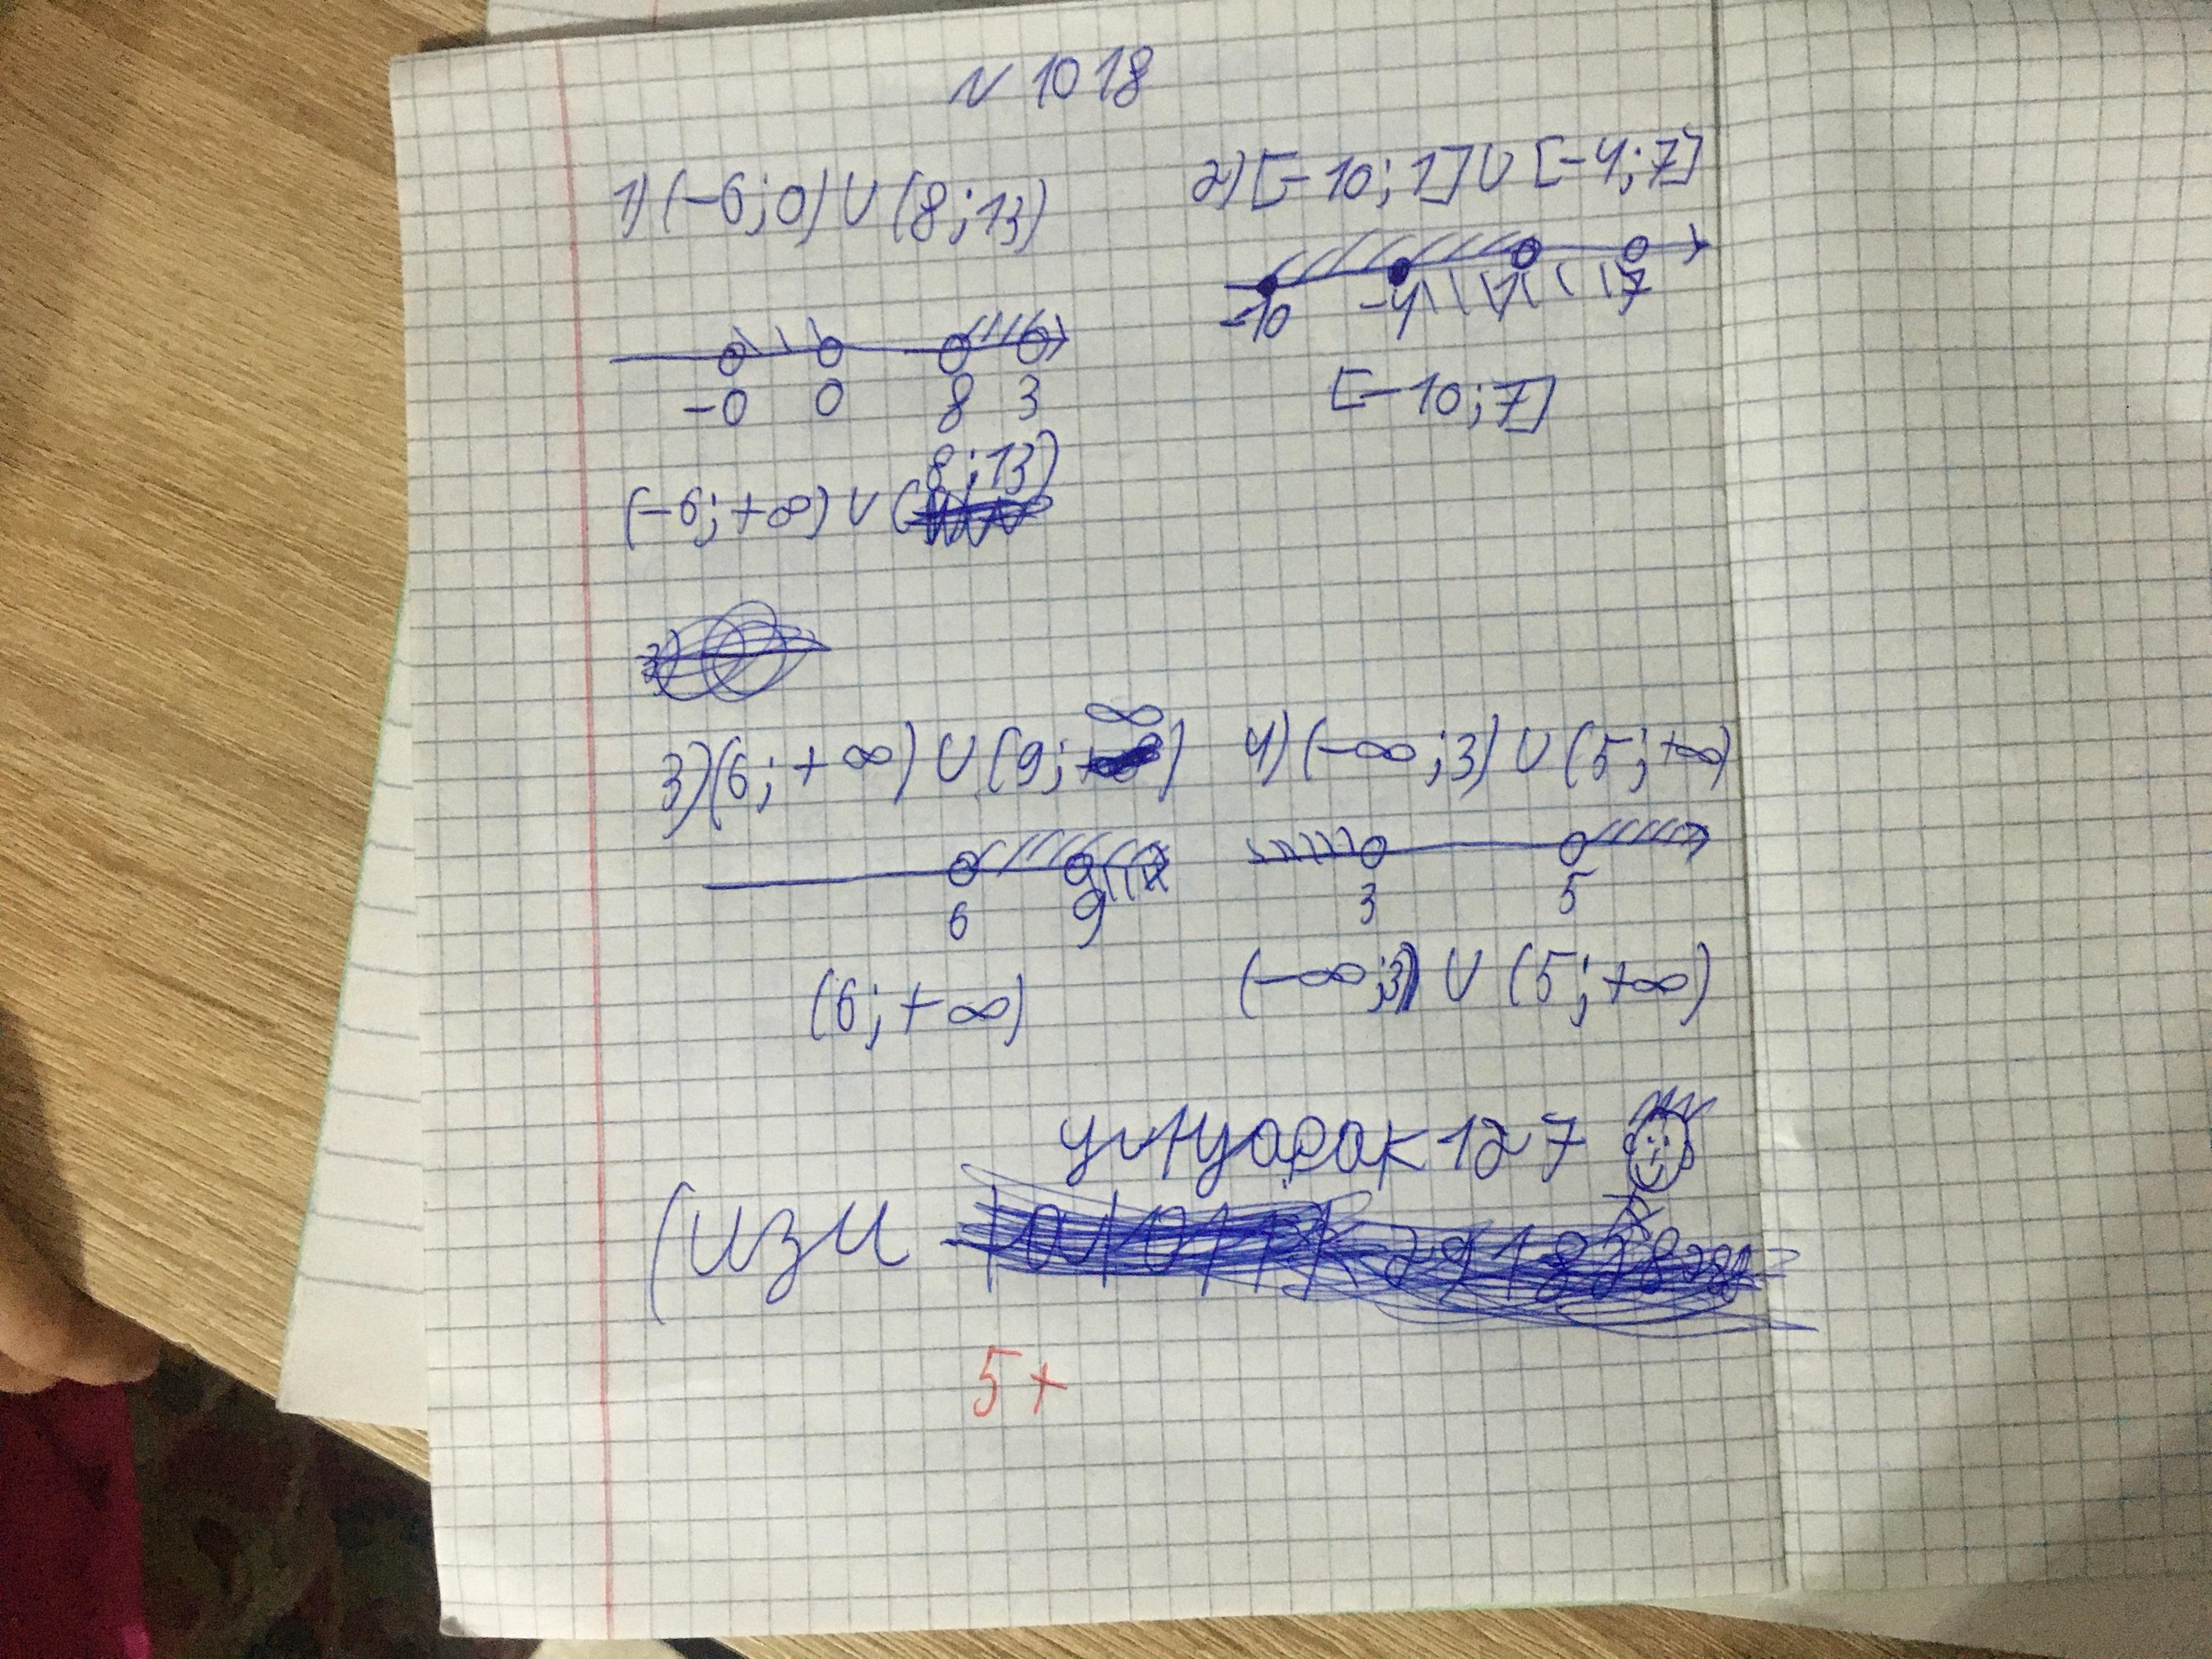 N 1018
1) (-6; 0) ∪ (8; 13)
-0 0 8 3
8; 13)
(-6; +∞) ∪ (
2) [-10; 1] ∪ [-4; 7]
-10 -4 1 7
[-10; 7]
3) (6; +∞) ∪ (9; ∞)
6 9
(6; +∞)
4) (-∞; 3) ∪ (5; +∞)
3 5
(-∞; 3) ∪ (5; +∞)
127
(изи
5+